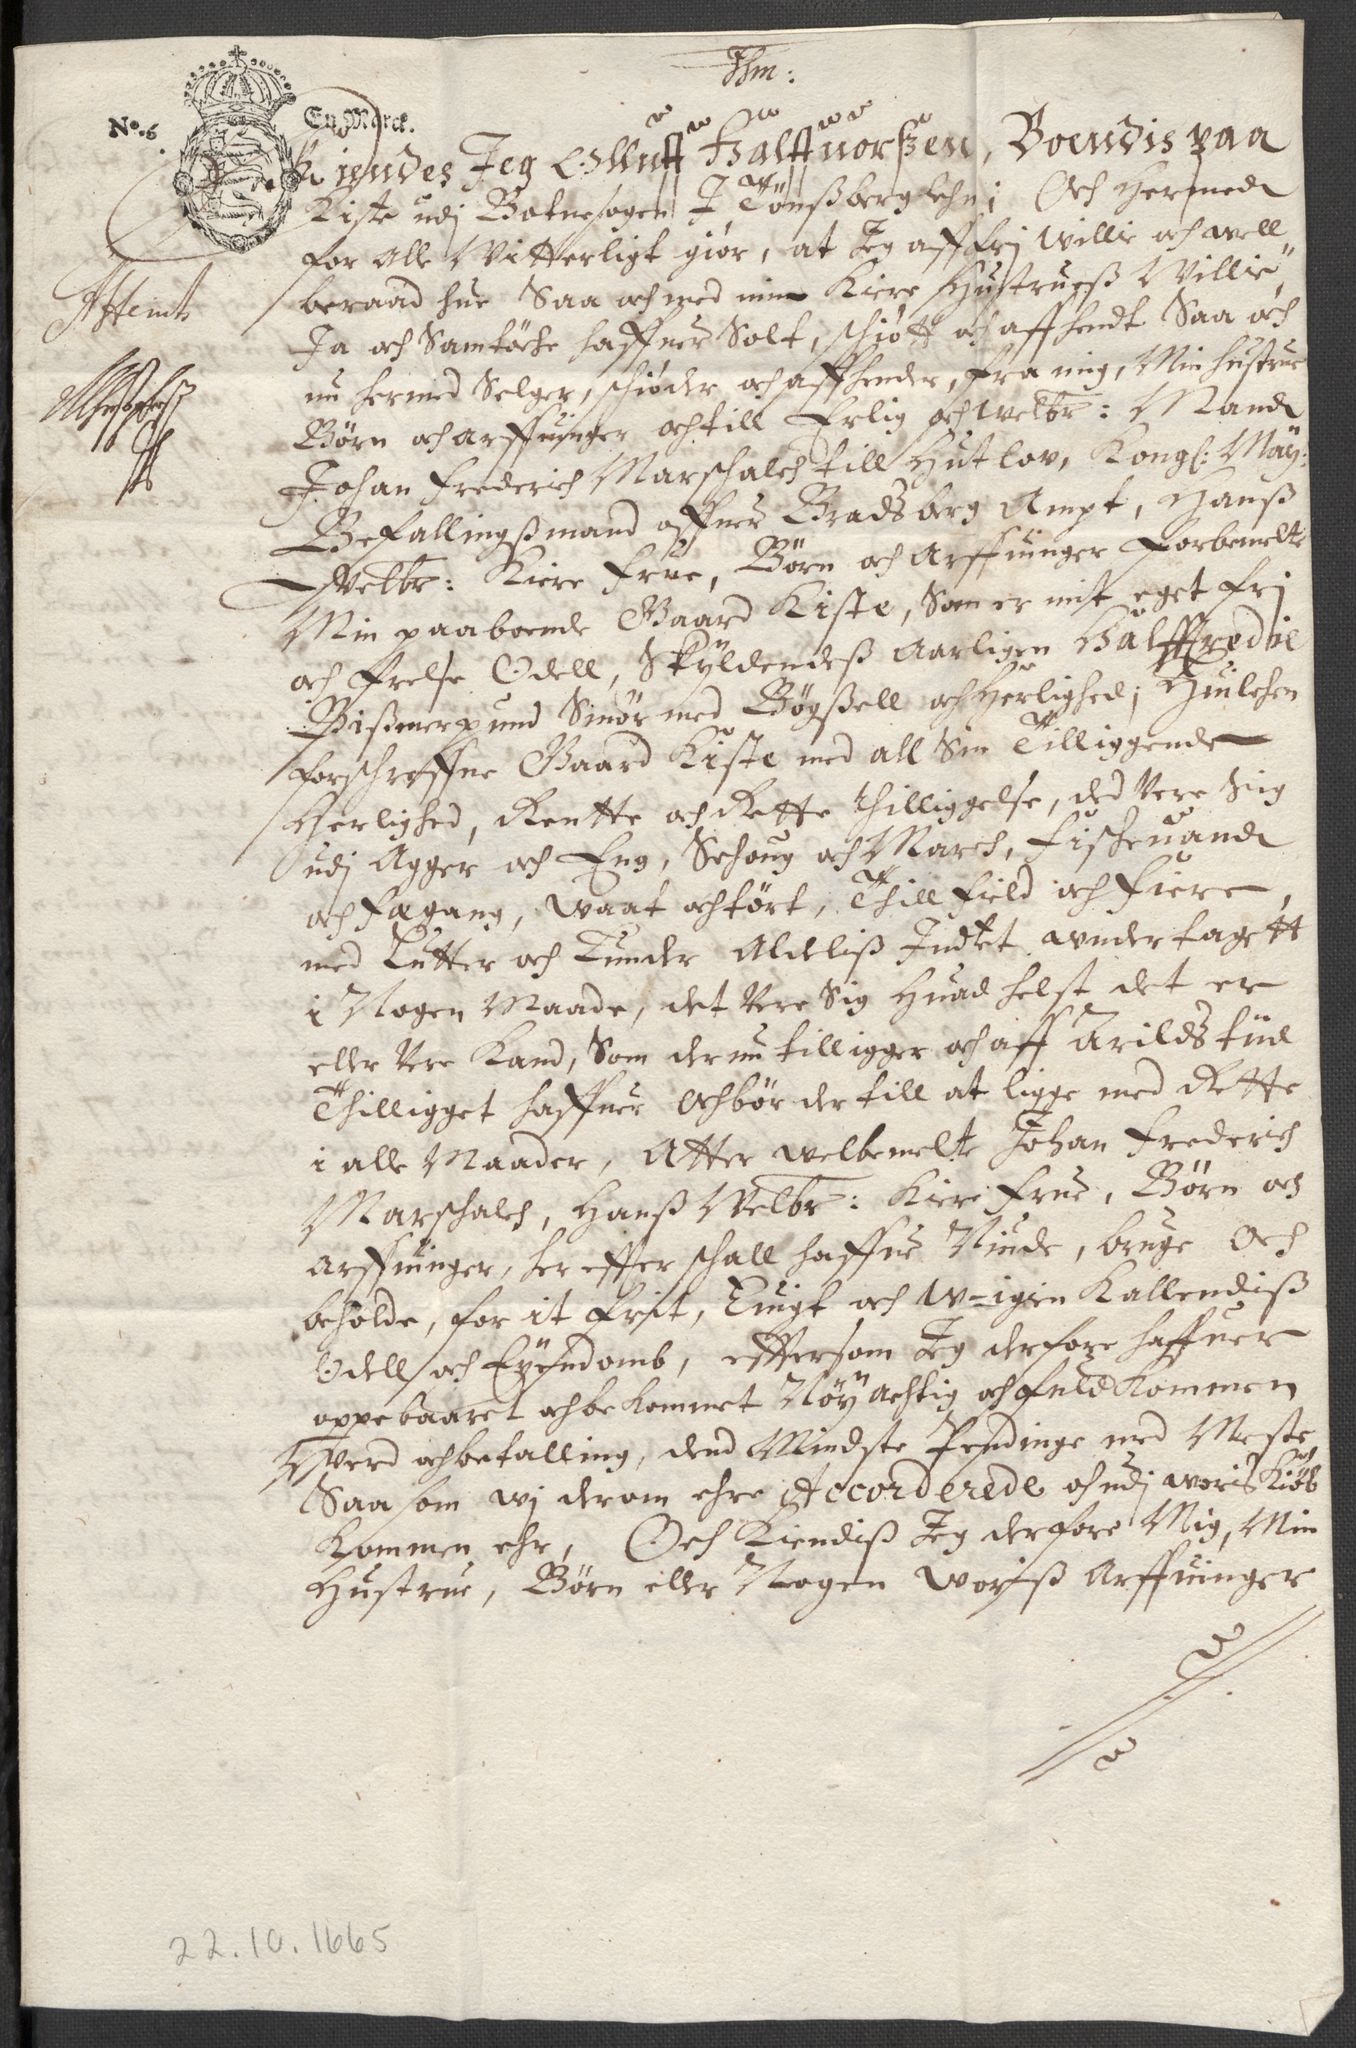 Ihm:
No. 6. En Marck.
Kiendes Jeg Olluff Halffuorßen, Boendis paa
Kiste udj Botnesogen J Tönßberg lehn; Och hermed
for alle Witterligt giör, at Jeg aff frj Willie och well
beraad hue Saa och med min Kiere Hustrueß Willie,
Attest
Ja och Samtöche haffuer Solt, schiött och affhendt Saa och
nu hermed Selger, schiöder och affhender, fra mig, Min hustrue
Börn och arffuinger och till Erlig och Welbr: Mand
Johan Frederich Marschalch till Hutlov, Kongl: May:
Befallingßmand offuer Bradsberg Ampt, Hanß
Welbr: Kiere Frue, Börn och Arffuinger forbemelte
Min paaboende Gaard Kiste, Som er mit eget frj
och frelse Odell, Skyldendeß Aarligen Halffredie
Bißmerpund Smör med Bögßell och Herlighed; Huilchen
forschreffne Gaard Kiste med all Sin Tilliggende
Herlighed, Rentte och Rette thilliggelse, ded Vere Sig
udj Agger och Eng, Schoug och March, Fischeuand
och fægang, Waat och tört, Thill field och fiere,
med Lutter och Lunder Aldeliß Indtet undertagett
i Nogen Maade, det Vere Sig Huad helst det er
eller Vere Kand, Som der nu tilligger och aff Arilds tiid
Thilligget haffuer och bör der till at ligge med Rette
i alle Maader, Atter welbemelte Johan Frederich
Marschalch, Hanß Welbr: Kiere Frue, Börn och
Arffuinger, her effter schall haffue Niude, bruge Och
beholde, for it frit, Euigt och W-igien Kallendiß
Odell och Eyendomb, effttersom Jeg derfore haffuer
oppebaaret och bekommet Nöyachtig och fuldKommen
Werd och betalling, dend Mindste Pendinge med Meste
Saa som wj derom ehre Accorderede och udj woris Kiöb
Kommen ehr, Och Kiendiß Jeg derfore Mig, Min
Hustrue, Börn eller Nogen worß Arffuinger
22.10.1665